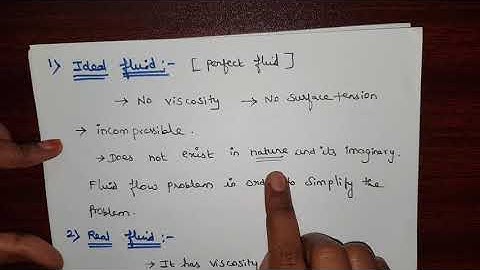 1) Ideal fluid:- [perfect fluid]
→ No viscosity → No surface tension
→ incompressible.
→ Does not exist in nature and its imaginary.
Fluid flow problem in order to simplify the
problem.
2) Real fluid:-
→ It has viscosity